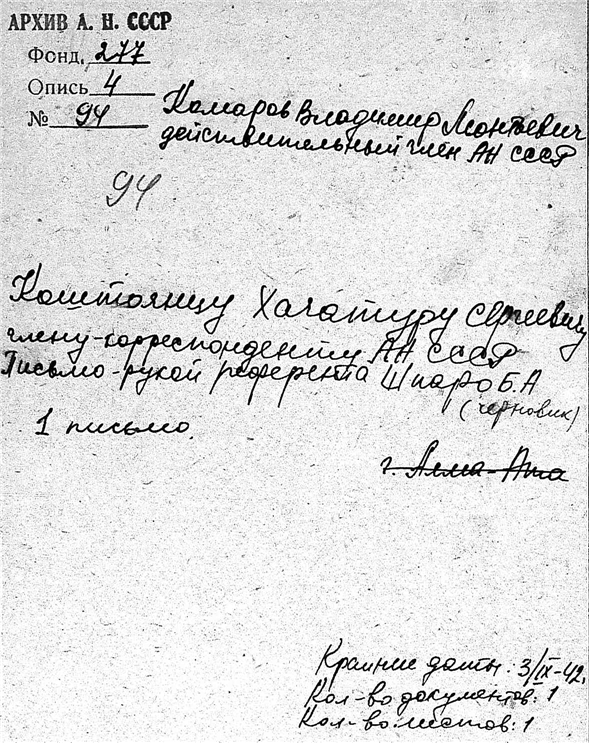 АРХИВ А. Н. СССР
Фонд. 277
Опись 4
№ 94
Комаров Владимир Леонтьевич
действительный член АН СССР
94
Коштоянцу Хачатуру Сергеевичу
члену-корреспонденту АН СССР
Письмо-рукой референта Шпаро Б.А
(черновик)
1 письмо.
г. Алма-Ата
Крайние даты: 3/IX-42.
Кол-во документов: 1
Кол-во листов: 1